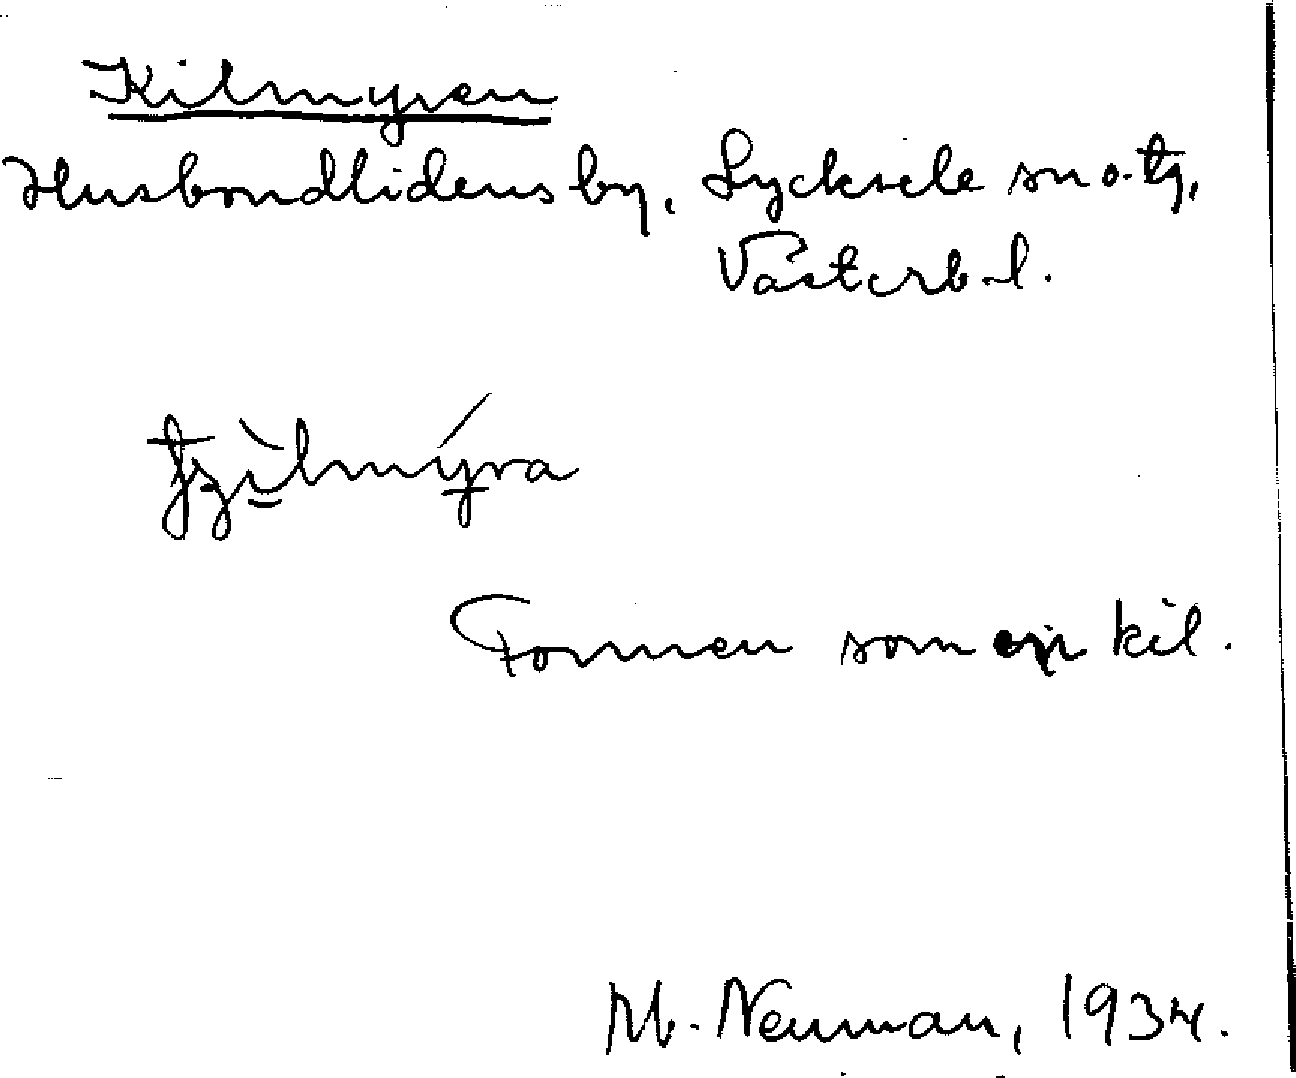 Kilmyren
Husbondlidens by, Lycksele sn o. tg,
Västerb. l.
Formen som en kil.
M. Neuman, 1934.